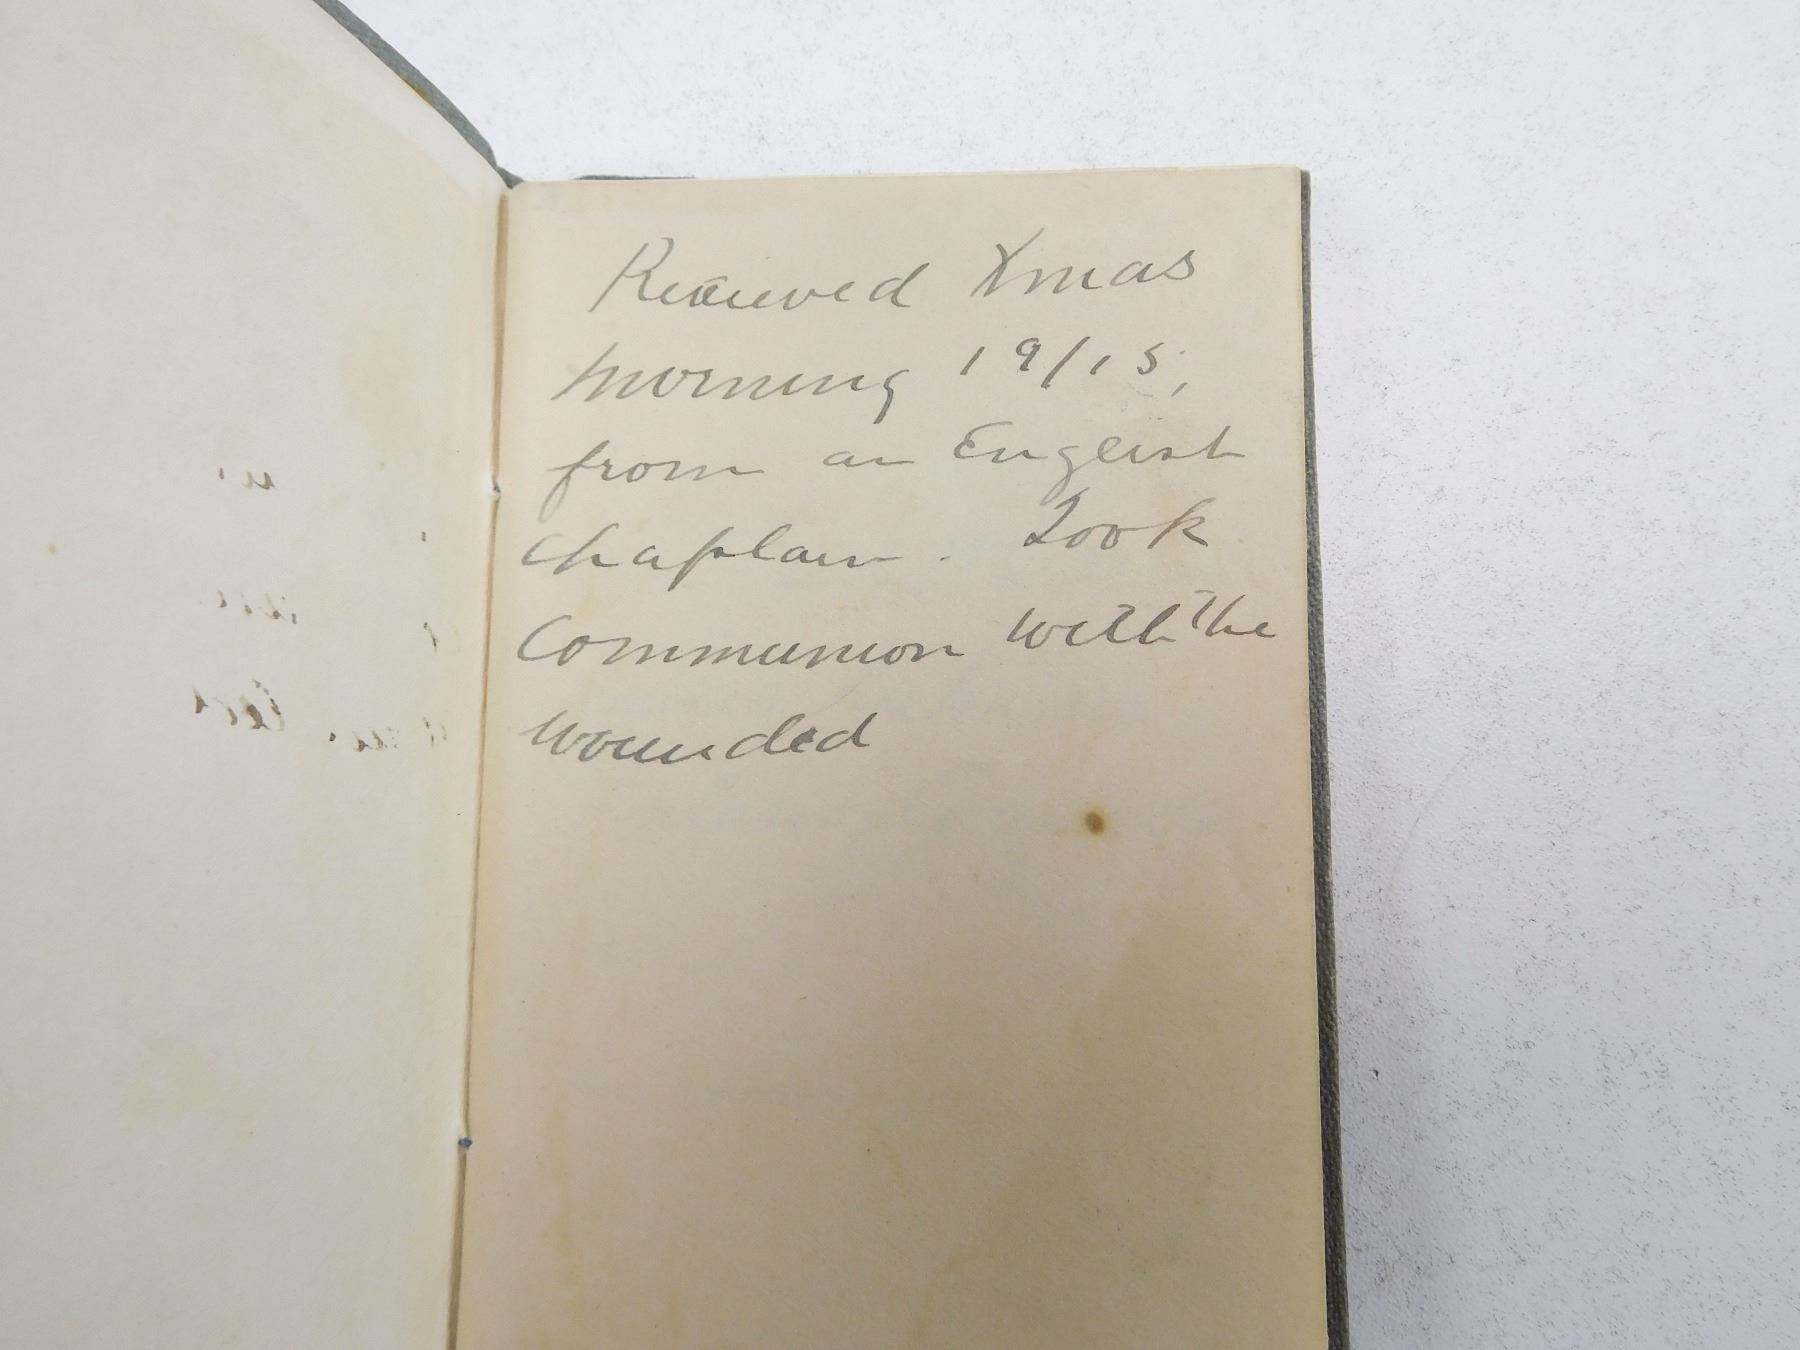 Received Xmas
morning 19/15,
from an English
Chaplain. Took
Communion with the
wounded